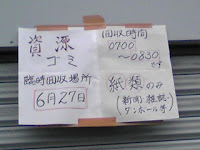 資源
ゴミ
臨時回収場所
6月27日
回収時間
0700
～0830
です
紙類のみ
新聞 雑誌
ダンボール等